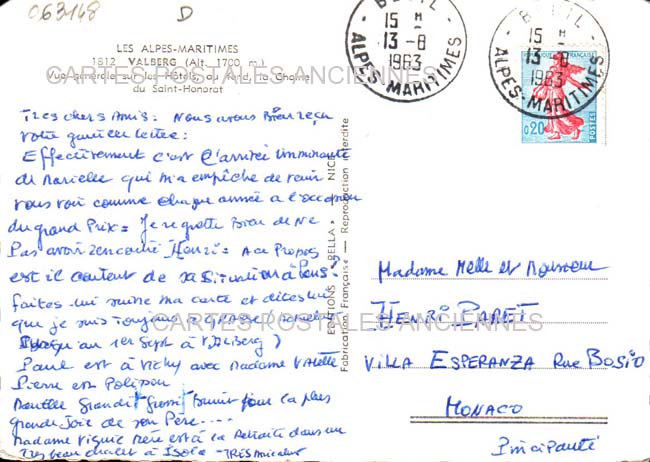 063148
D
LES ALPES-MARITIMES
1812 VALBERG (Alt. 1700 m.)
Vue générale sur les Hôtels, au fond, la Chaîne
du Saint-Honorat
BEUIL
15 H
13-8
1963
ALPES-MARITIMES
BEUIL
15 H
13-8
1963
ALPES-MARITIMES
FRANÇAISE
0,20
POSTES
CARTES POSTALES ANCIENNES
Très chers Amis: Nous avons Bien reçu
votre lettre:
Effectivement c'est l'arrivée imminente
de Marielle qui m'a empêché de venir
vous voir comme chaque année à l'occasion
du grand Prix = Je regrette Bien de Ne
Pas avoir rencontré Henri = A ce Propos
est il content de sa Situation à Paris?
faites lui suivre ma carte et dites lui
que je suis toujours à
Jusqu'au 1er Sept à Valberg)
Paul est à Vichy avec Madame
Pierre est
grandit pour la plus
grande Joie de son Père....
Madame Viguié Mère est à la Retraite dans un
Très beau chalet à Isola - TRÈS
EDITIONS "RELLA" - NICE
Fabrication Française - Reproduction interdite
Madame Melle et Monsieur
HENRI PARET
VILLA ESPERANZA Rue BOSIO
MONACO
Principauté
CARTES POSTALES ANCIENNES